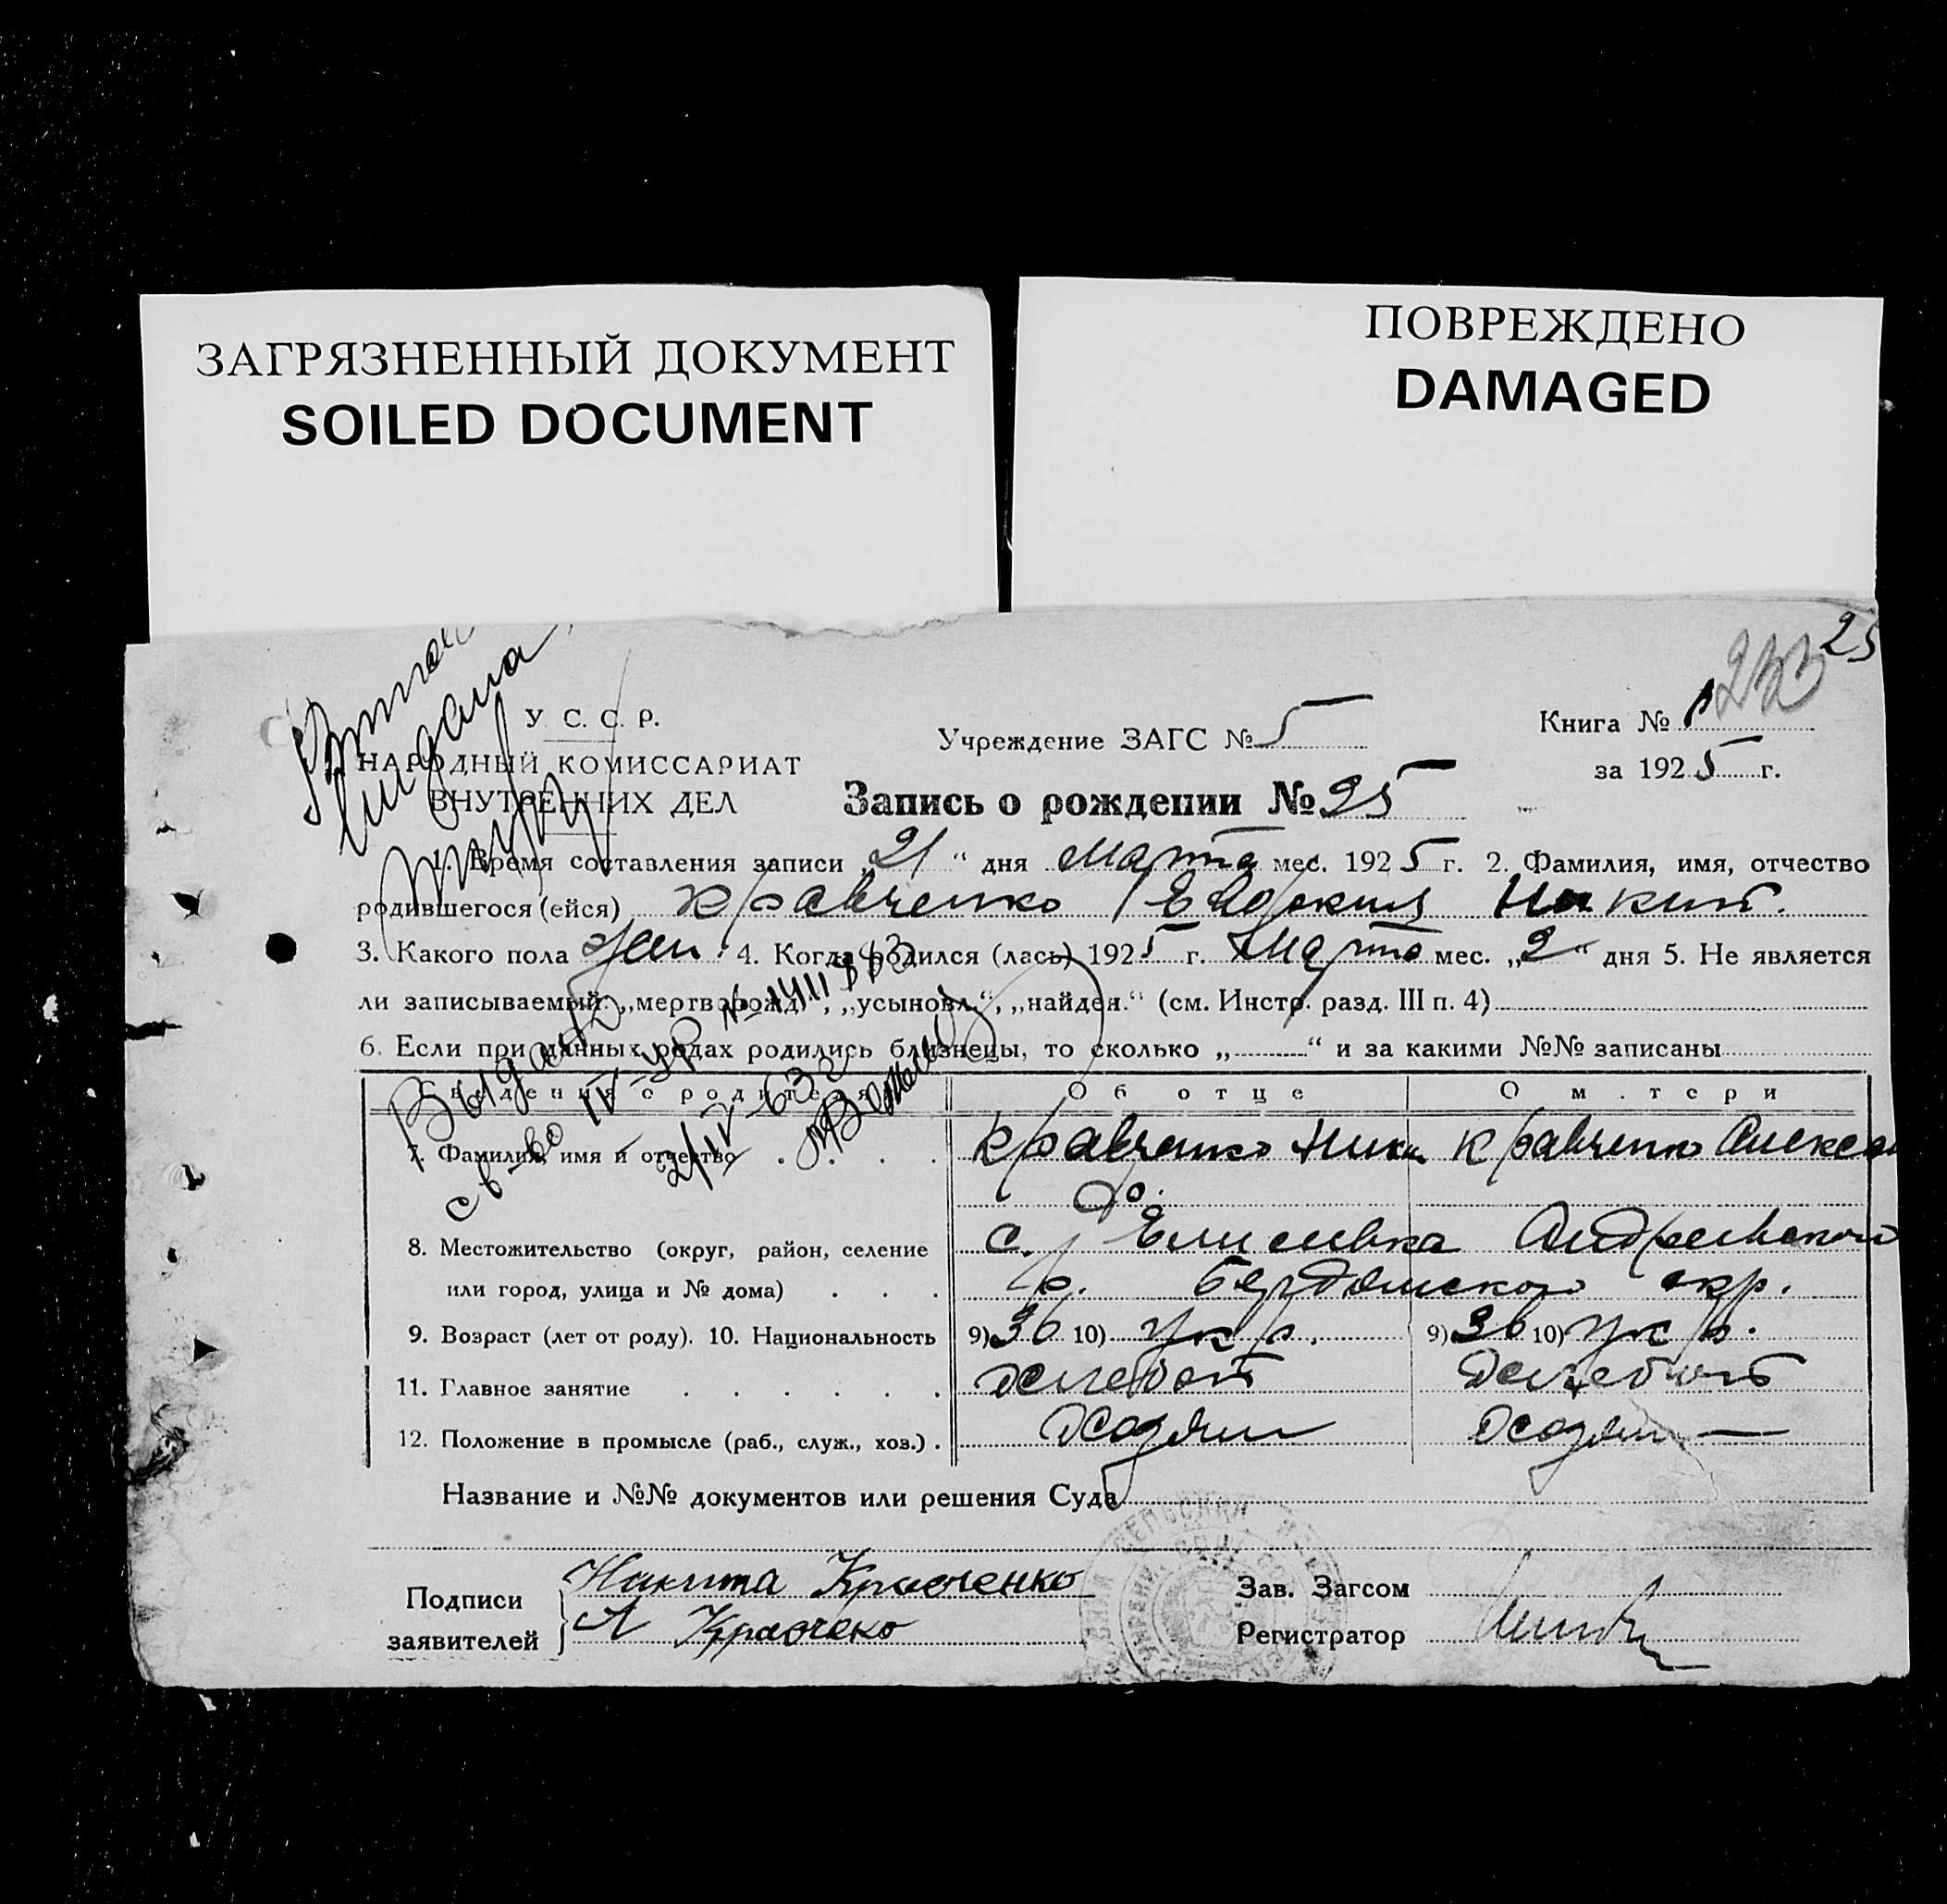 ЗАГРЯЗНЕННЫЙ ДОКУМЕНТ
SOILED DOCUMENT
ПОВРЕЖДЕНО
DAMAGED
25
233
У. С. С. Р.
НАРОДНЫЙ КОМИССАРИАТ
ВНУТРЕННИХ ДЕЛ
Учреждение ЗАГС № 5
Книга № 1
за 1925 г.
Запись о рождении № 25
1. Время составления записи „21“ дня Марта мес. 1925 г. 2. Фамилия, имя, отчество
родившегося (ейся) Кравченко Евдокия Никит.
3. Какого пола жен. 4. Когда родился (лась) 1925 г. Марта мес. „2“ дня 5. Не является
ли записываемый: „мертворожд.“, „усыновл.“, „найден.“ (см. Инстр. разд. III п. 4)
6. Если при данных родах родились близнецы, то сколько „ “ и за какими №№ записаны
Выдано
св-во IV-УР №
2/IV-63 г.
Сведения о родителях
Об отце
О м.тери
7. Фамилия, имя и отчество Кравченко Ники Кравченко Алексан
8. Местожительство (округ, район, селение с. Елисеевка Андреевского
или город, улица и № дома) р. Бердянского окр.
9. Возраст (лет от роду). 10. Национальность 9) 36 10) укр. 9) 36 10) укр.
11. Главное занятие хлебоп хлебоп
12. Положение в промысле (раб., служ., хоз.) хозяин хозяин
Название и №№ документов или решения Суда
Подписи
заявителей
Никита Кравченко
А Кравчеко
Зав. Загсом
Регистратор